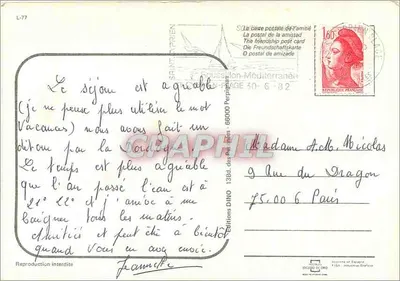 L-77
Le séjour est agréable
(je ne peux plus utiliser le mot
Vacances) nous avons fait un
par la
Le temps est plus agréable
que l'an passé l'eau est à
21° 22° et j'arrive à me
baigner tous les matins.
Amitiés et peut être à bientôt
quand vous en avez envie.
Jeannette
Reproduction interdite
Editions DINO
66000 Perpignan
SAINT-CYPRIEN
Roussillon-Méditerranée
30-6-82
La carte postale de l'amitié
La postal de la amistad
The friendship post card
Die Freundschaftskarte
O postal de amizade
1,60
REPUBLIQUE FRANCAISE
Madame A.M. Nicolas
9 rue du Dragon
75.006 Paris
CPAPHIL